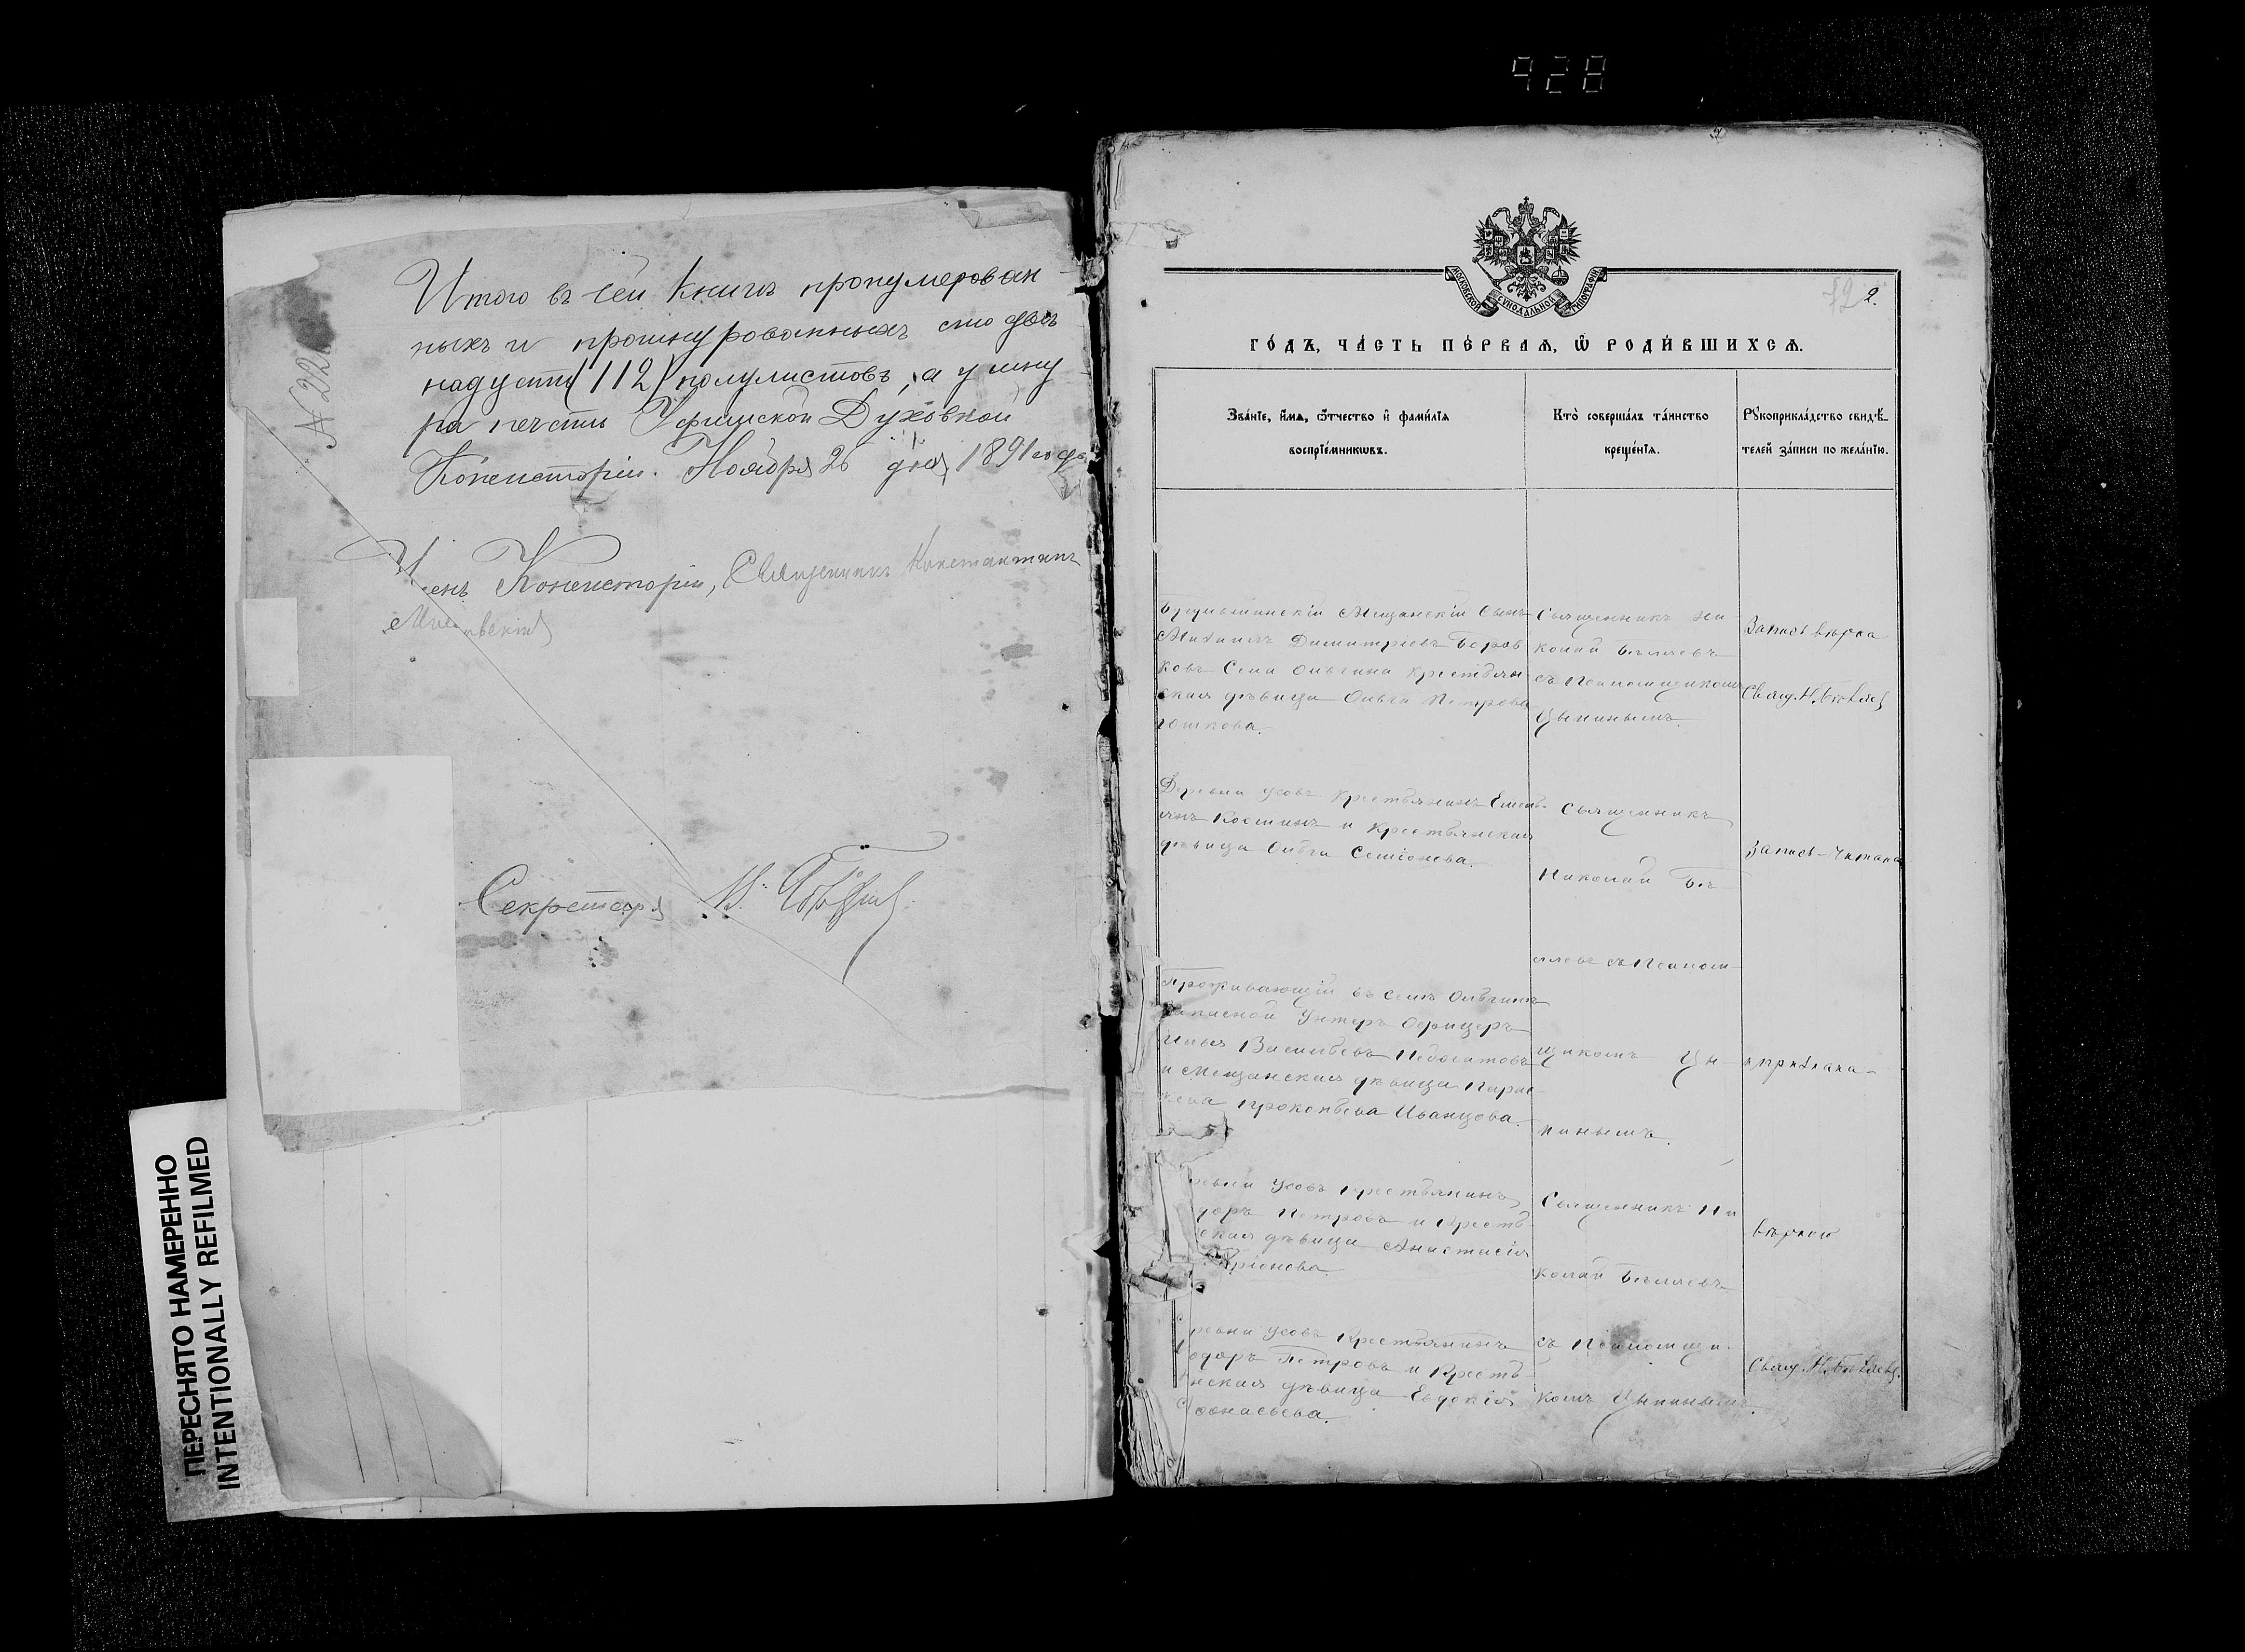 928
Итого въ сей книгѣ пронумерован
ныхъ и прошнурованныхъ сто двѣ
надцать (112) полулистовъ, а у шну
ра печать Уфимской Духовной
Консисторіи. Ноября 26 дня 1891 года
№ 22
Членъ Консисторіи, Священникъ Константинъ
Секретарь
ПЕРЕСНЯТО НАМЕРЕННО
INTENTIONALLY REFILMED
МОСКОВСКОЙ СУНОДАЛЬНОЙ ТИПОГРАФІИ
2.
ГО́ДЪ, ЧА́СТЬ ПЕ́РВАѦ, Ѡ҆ РОДИ́ВШИХСѦ.
Зва́нїе, и҆́мѧ, ѻ҆́тчество и҆ фами́лїѧ
воспрїе́мникѡвъ.
Кто̀ соверша́лъ та́инство
креще́нїѧ.
Рꙋкоприкла́дство свидѣ́-
телей за́писи по жела́нїю.
Мещанскій Сынъ
Михаилъ Димитріевъ Боров
ковъ Села Ольгина крестьян
ская дѣвица Ольга Петрова
Юшкова.
Священникъ Ни
колай Бѣляевъ
съ Псаломщикомъ
Цыпинымъ.
Запись вѣрна
Свящ. Н. Бѣляевъ
Деревни Усовъ крестьянинъ Емель
янъ Костинъ и крестьянская
дѣвица Ольга Семіонова.
Священникъ
Николай Бѣ
ляевъ съ Псалом-
щикомъ Цы-
пинымъ.
Запись читана
и признана
вѣрною
Свящ. Н. Бѣляевъ.
Проживающій въ селѣ Ольгинѣ
Запасной Унтеръ Офицеръ
Илья Васильевъ
и Мещанская дѣвица Парас
кева Прокопьева Иванцова.
ревни Усовъ крестьянинъ
доръ Петровъ и Кресть
ская дѣвица Анастасія
ріонова.
Священникъ Ни
колай Бѣляевъ
съ Псаломщи
комъ Цыпинымъ.
ревни Усовъ Крестьянинъ
одоръ Петровъ и Кресть
нская дѣвица Евдокія
фонасьева.